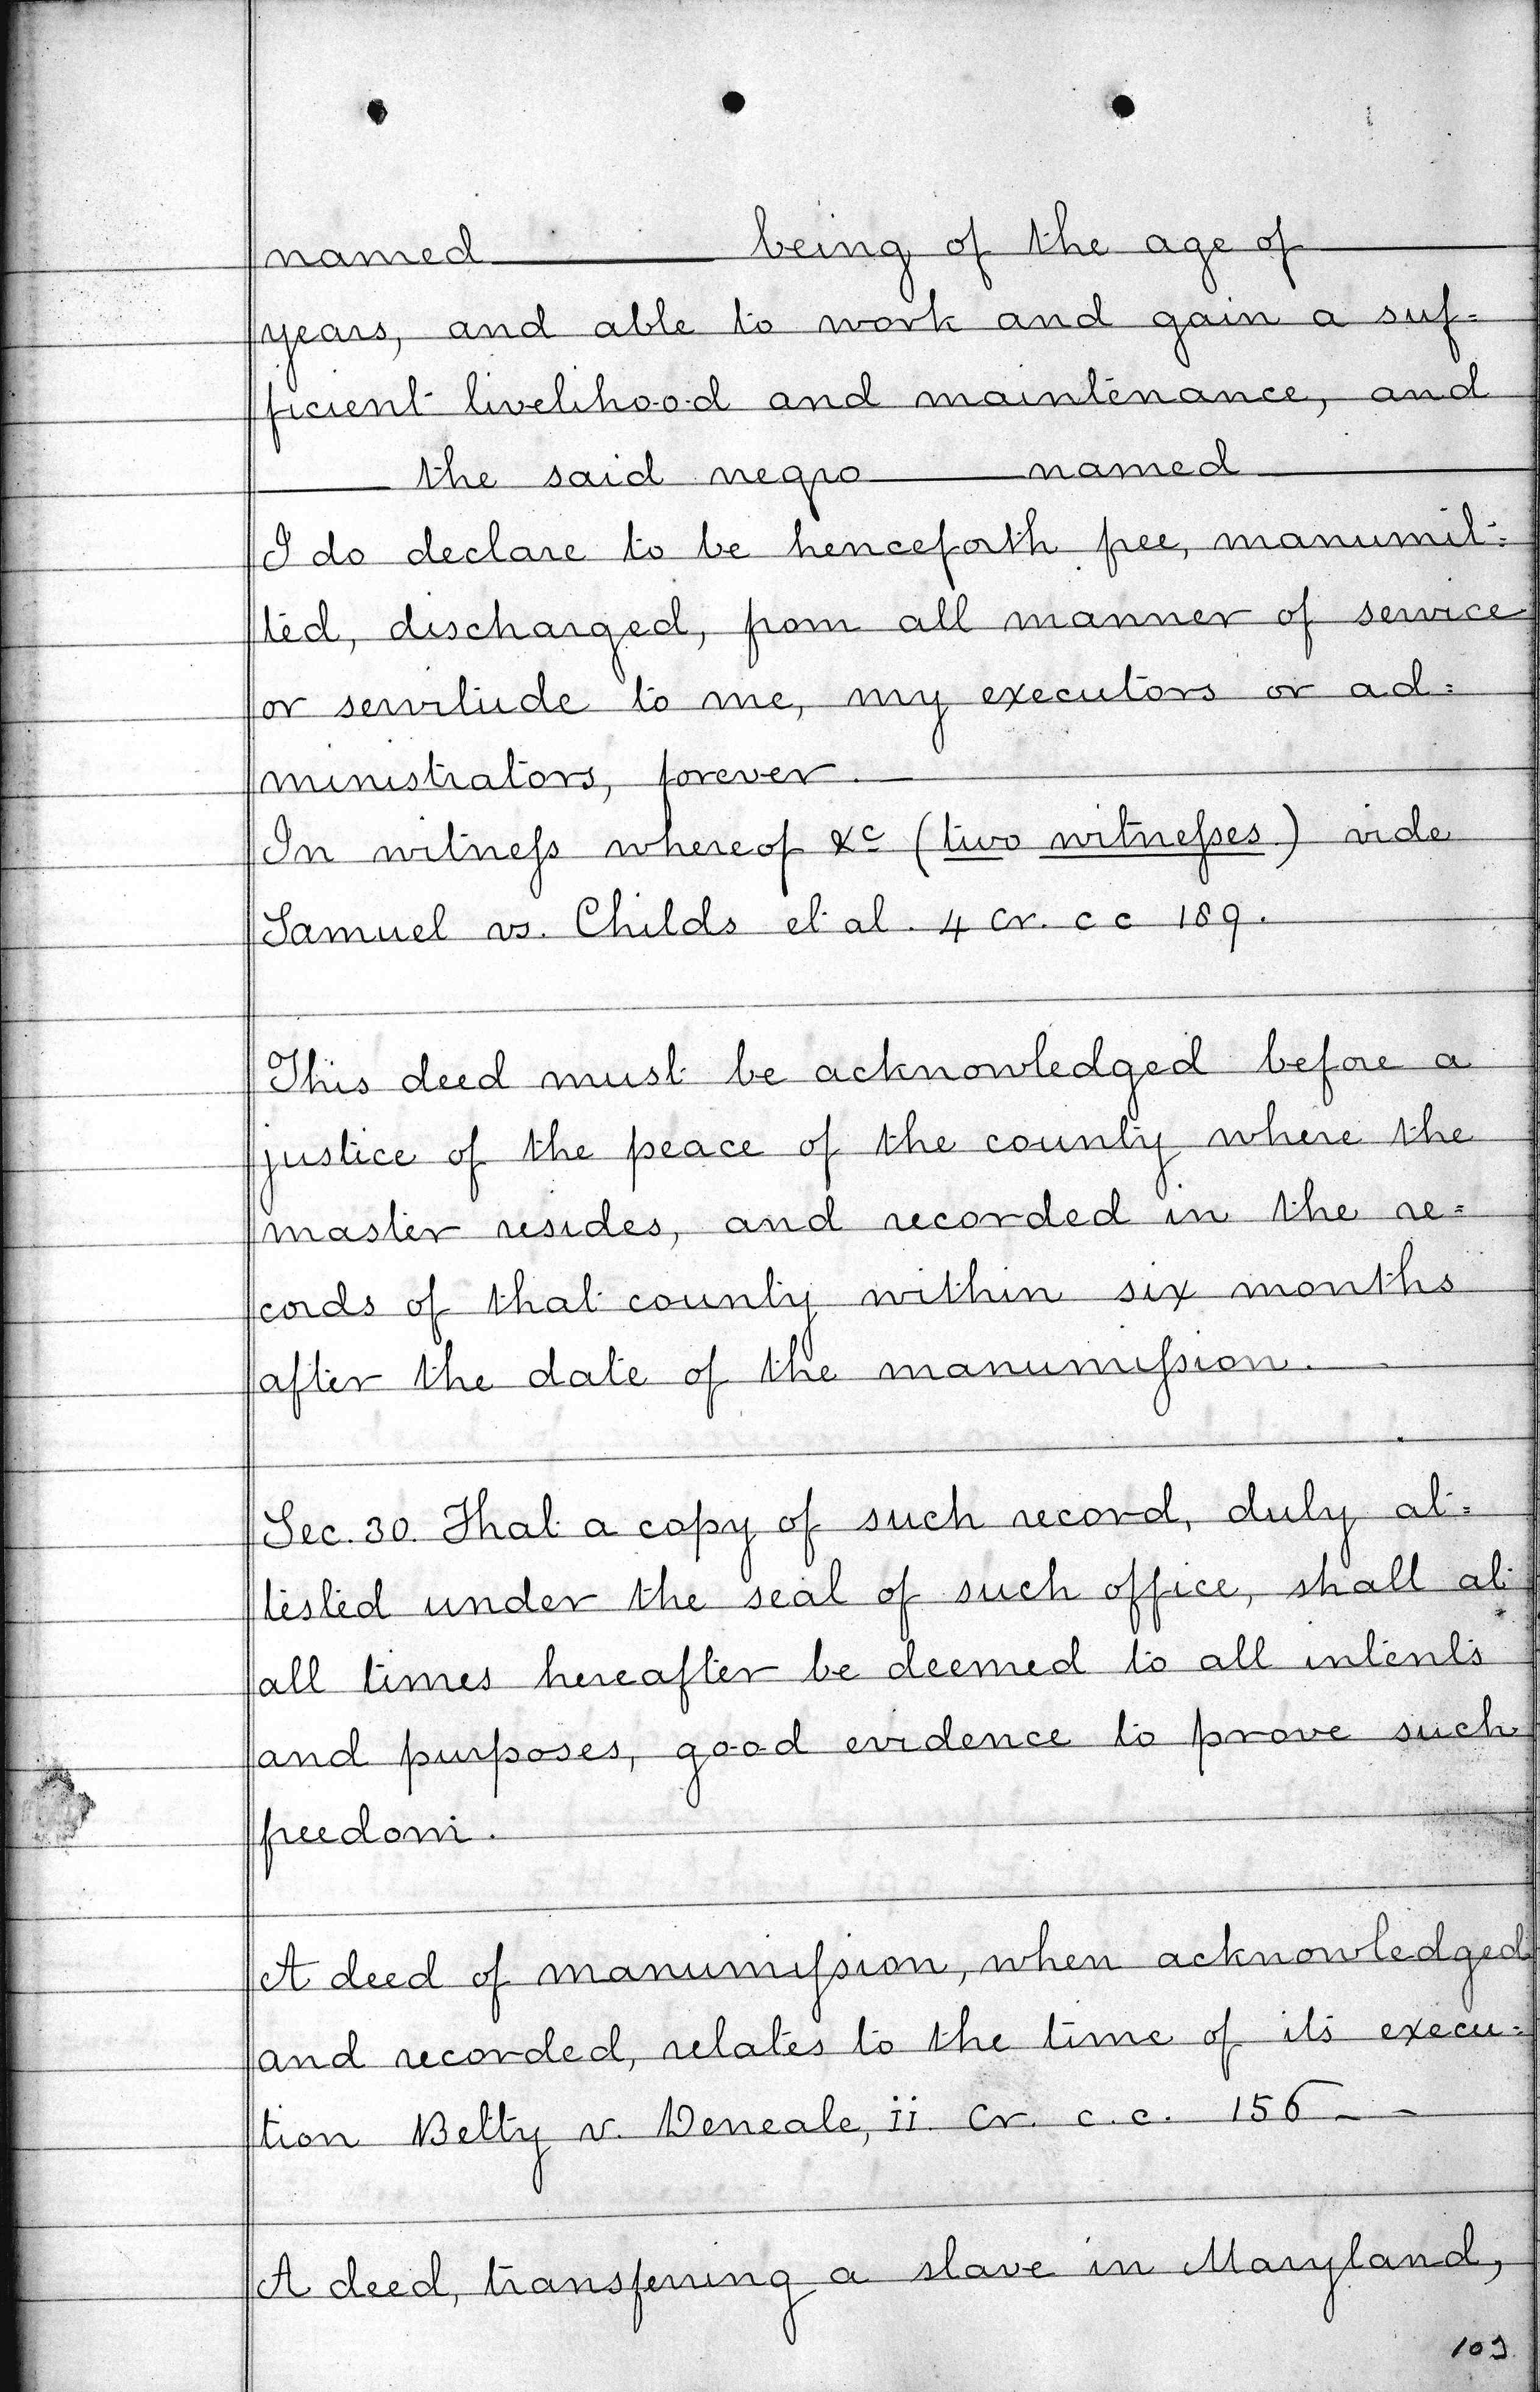 named ______ being of the age of ______
years, and able to work and gain a suf=
ficient livelihood and maintenance, and
______ the said negro ______ named ______
I do declare to be henceforth free, manumit=
ted, discharged, from all manner of service
or servitude to me, my executors or ad=
ministrators, forever.—
In witneſs whereof &c (two witneſses) vide
Samuel vs. Childs et al. 4 Cr. c c 189.
This deed must be acknowledged before a
justice of the peace of the county where the
master resides, and recorded in the re=
cords of that county within six months
after the date of the manumiſsion.
Sec. 30. That a copy of such record, duly at=
tested under the seal of such office, shall at
all times hereafter be deemed to all intents
and purposes, good evidence to prove such
freedom.
A deed of manumiſsion, when acknowledged
and recorded, relates to the time of its execu=
tion Betty v. Deneale, ii. Cr. c.c. 156 – –
A deed, transferring a slave in Maryland,
103